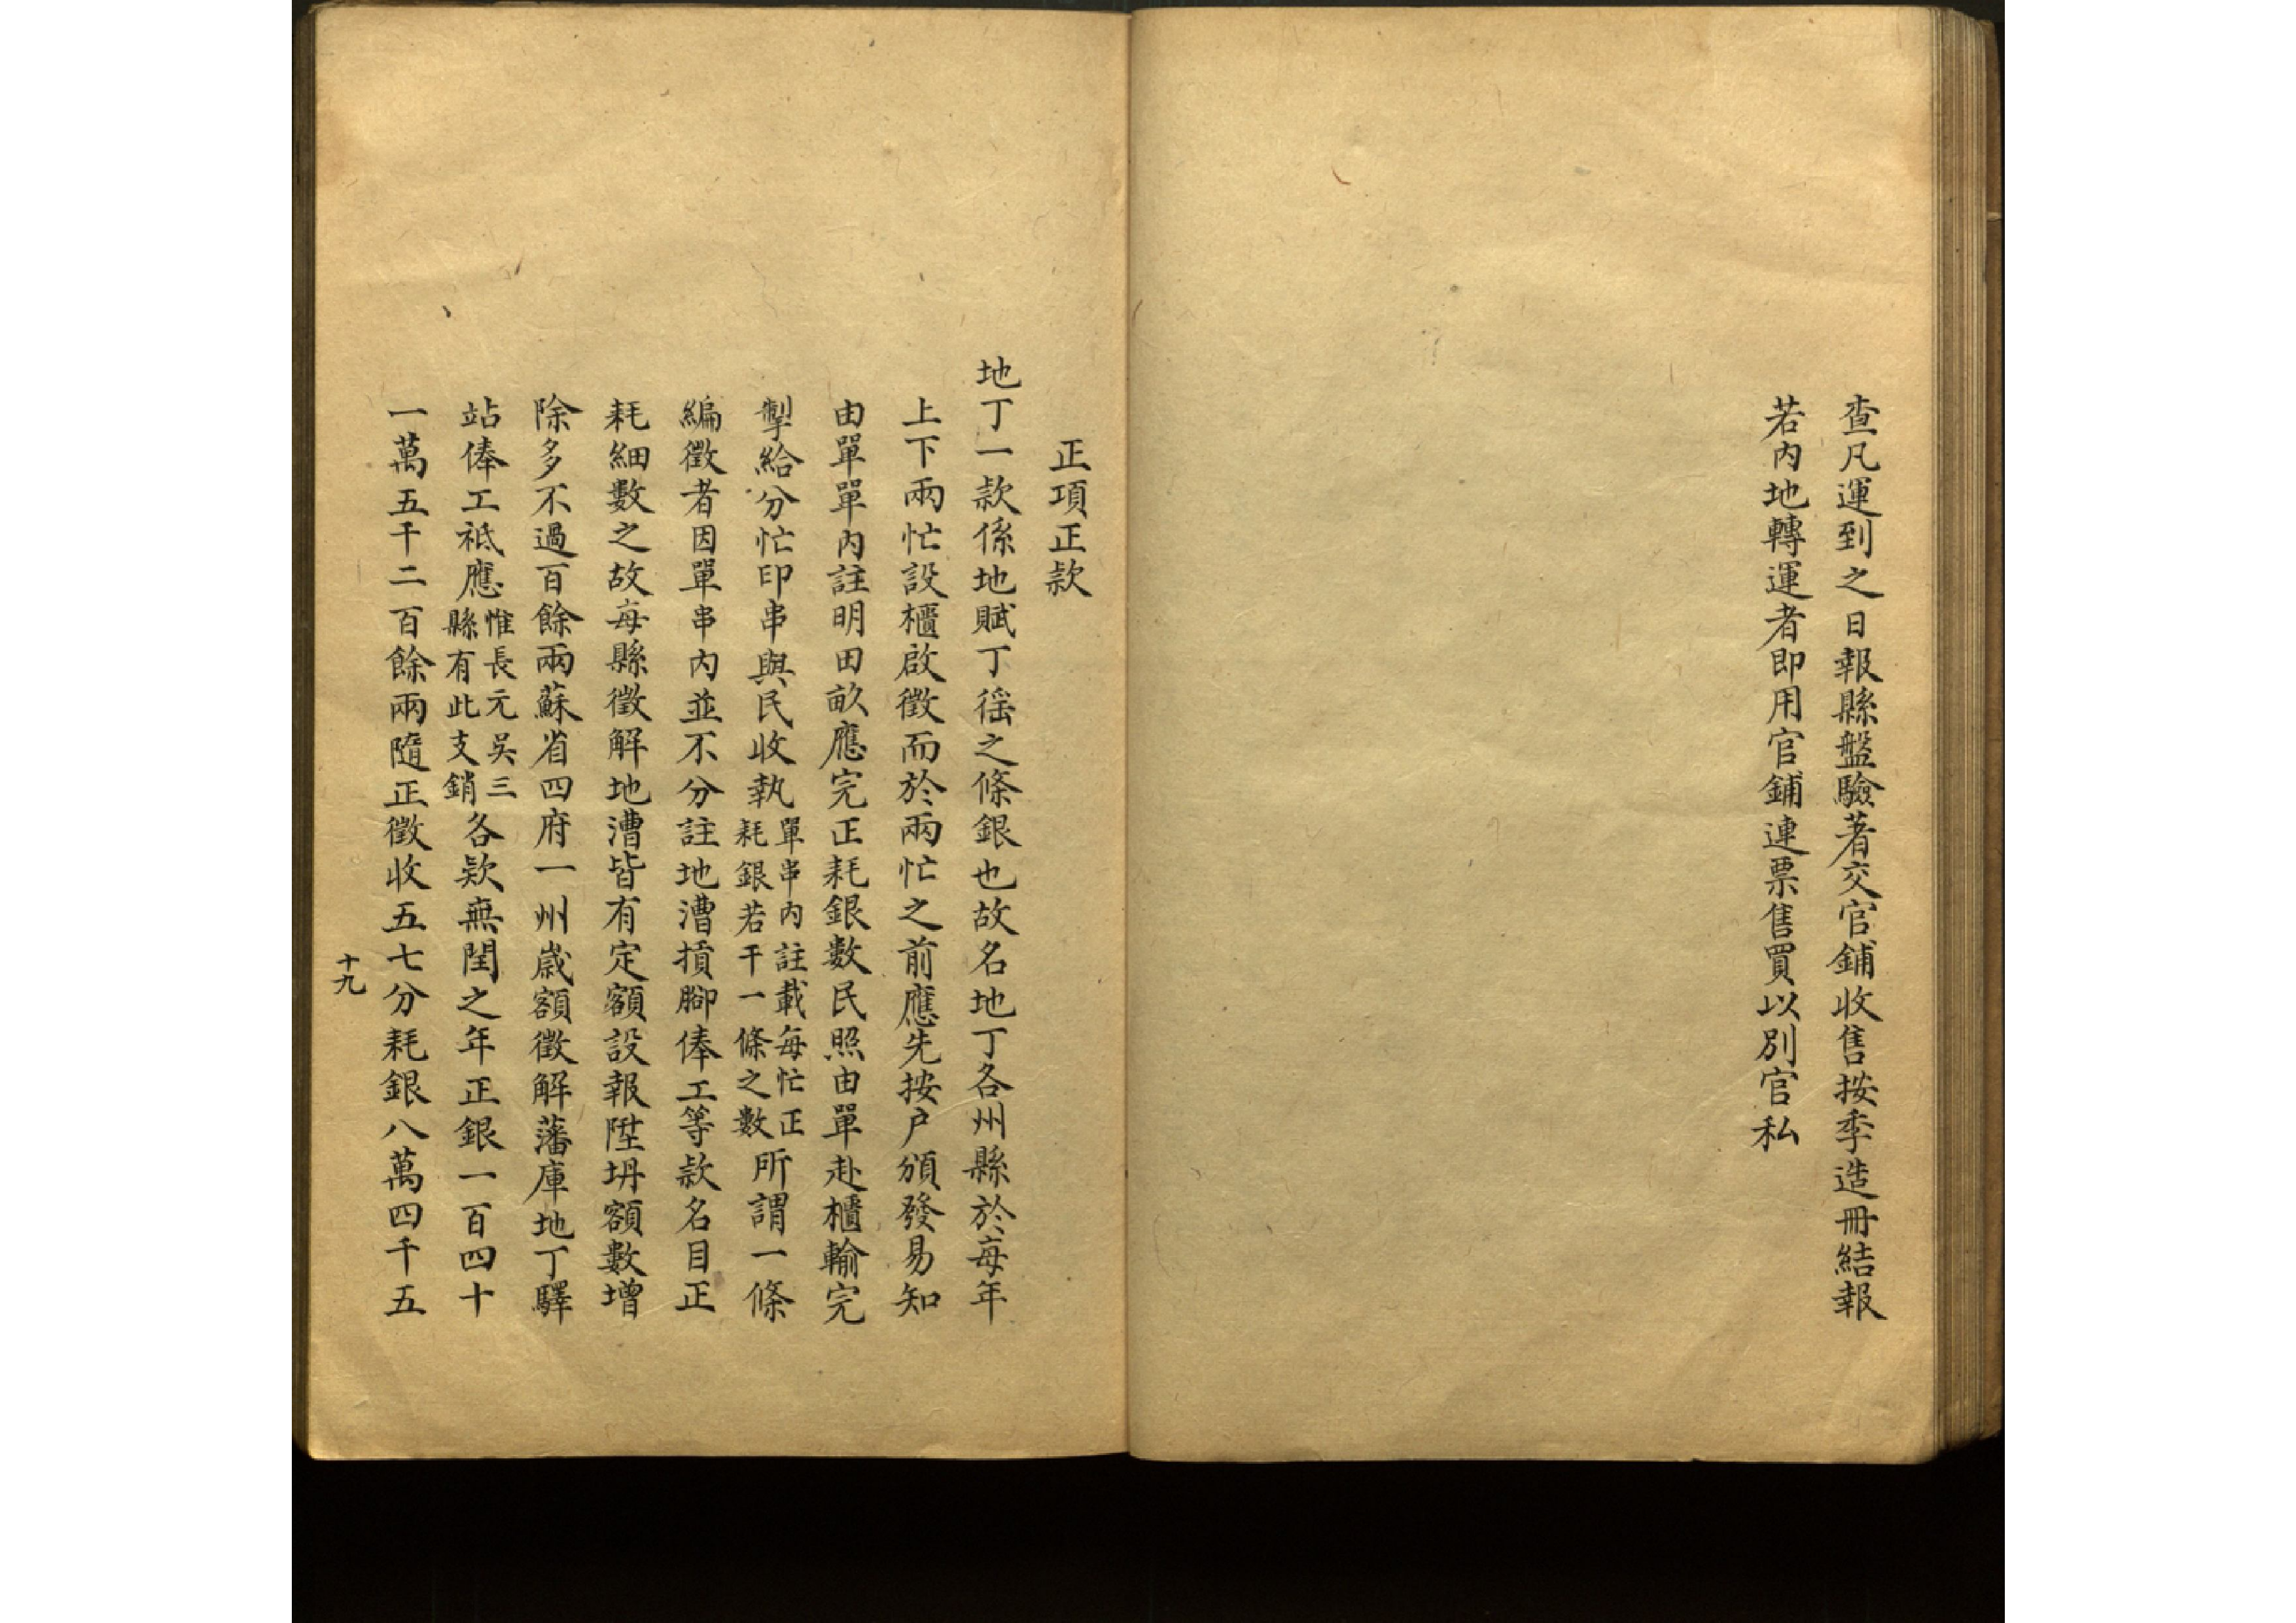 查凡運到之日報縣盤驗著交官鋪收售按季造冊結報
若內地轉運者即用官鋪連票售買以別官私
正項正款
地丁一款係地賦丁徭之條銀也故名地丁各州縣於每年
上下兩忙設櫃啟徵而於兩忙之前應先按户頒發易知
由單單內註明田畝應完正耗銀數民照由單赴櫃輸完
掣給分忙印串與民收執單串內註載每忙正耗銀若干一條之數所謂一條
編徵者因單串內並不分註地漕摃腳俸工等款名目正
耗細數之故每縣徵解地漕皆有定額設報陞坍額數增
除多不過百餘兩蘇省四府一州歲額徵解藩庫地丁驛
站俸工祗應惟長元吳三縣有此支銷各欵無閏之年正銀一百四十
一萬五千二百餘兩隨正徵收五七分耗銀八萬四千五
十九